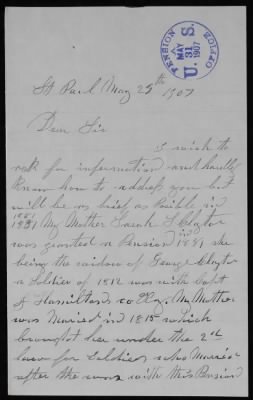 PENSION OFFICE
U. S.
MAY
31
1907
St Paul May 25th 1907
Dear Sir
I wish to
ask for information and hardly
know how to address you but
will be as brief as posible in
1881
1881 My Mother Sarah
was granted a Pension in 1881 she
being the widow of George
a Soldier of 1812 was with Capt
Hamiltons co My Mother
was Maried in 1815 which
brought her under the 2nd
law for Soldiers who Maried
after the war with this Pension